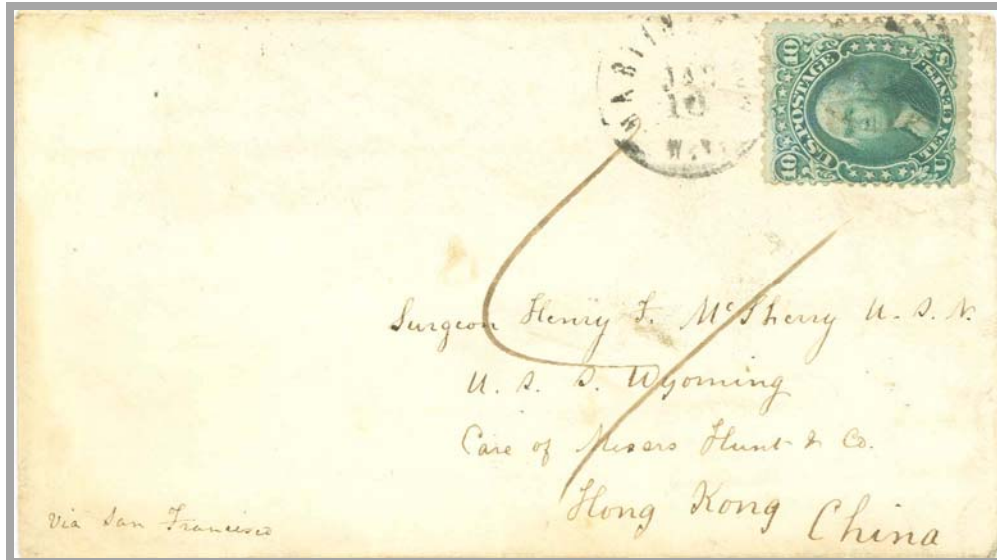 JAN
10
W.VA
U.S. POSTAGE
TEN CENTS
10 10
U S
Surgeon Henry F. McSherry U. S. N.
U. S. S. Wyoming
Care of Messrs Hunt & Co.
Hong Kong
China
Via San Francisco